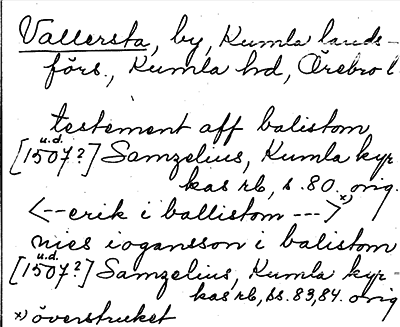 Vallersta, by, Kumla lands-
förs., Kumla hd, Örebro l.
testement aff balistom
u.d.
[1507?] Samzelius, Kumla kyr-
kas rb, s. 80. orig.
<--erik i ballistom ---> x)
nies iogansson i balistom
u.d.
[1507?] Samzelius, Kumla kyr-
kas rb, ss. 83, 84. orig
x) överstruket